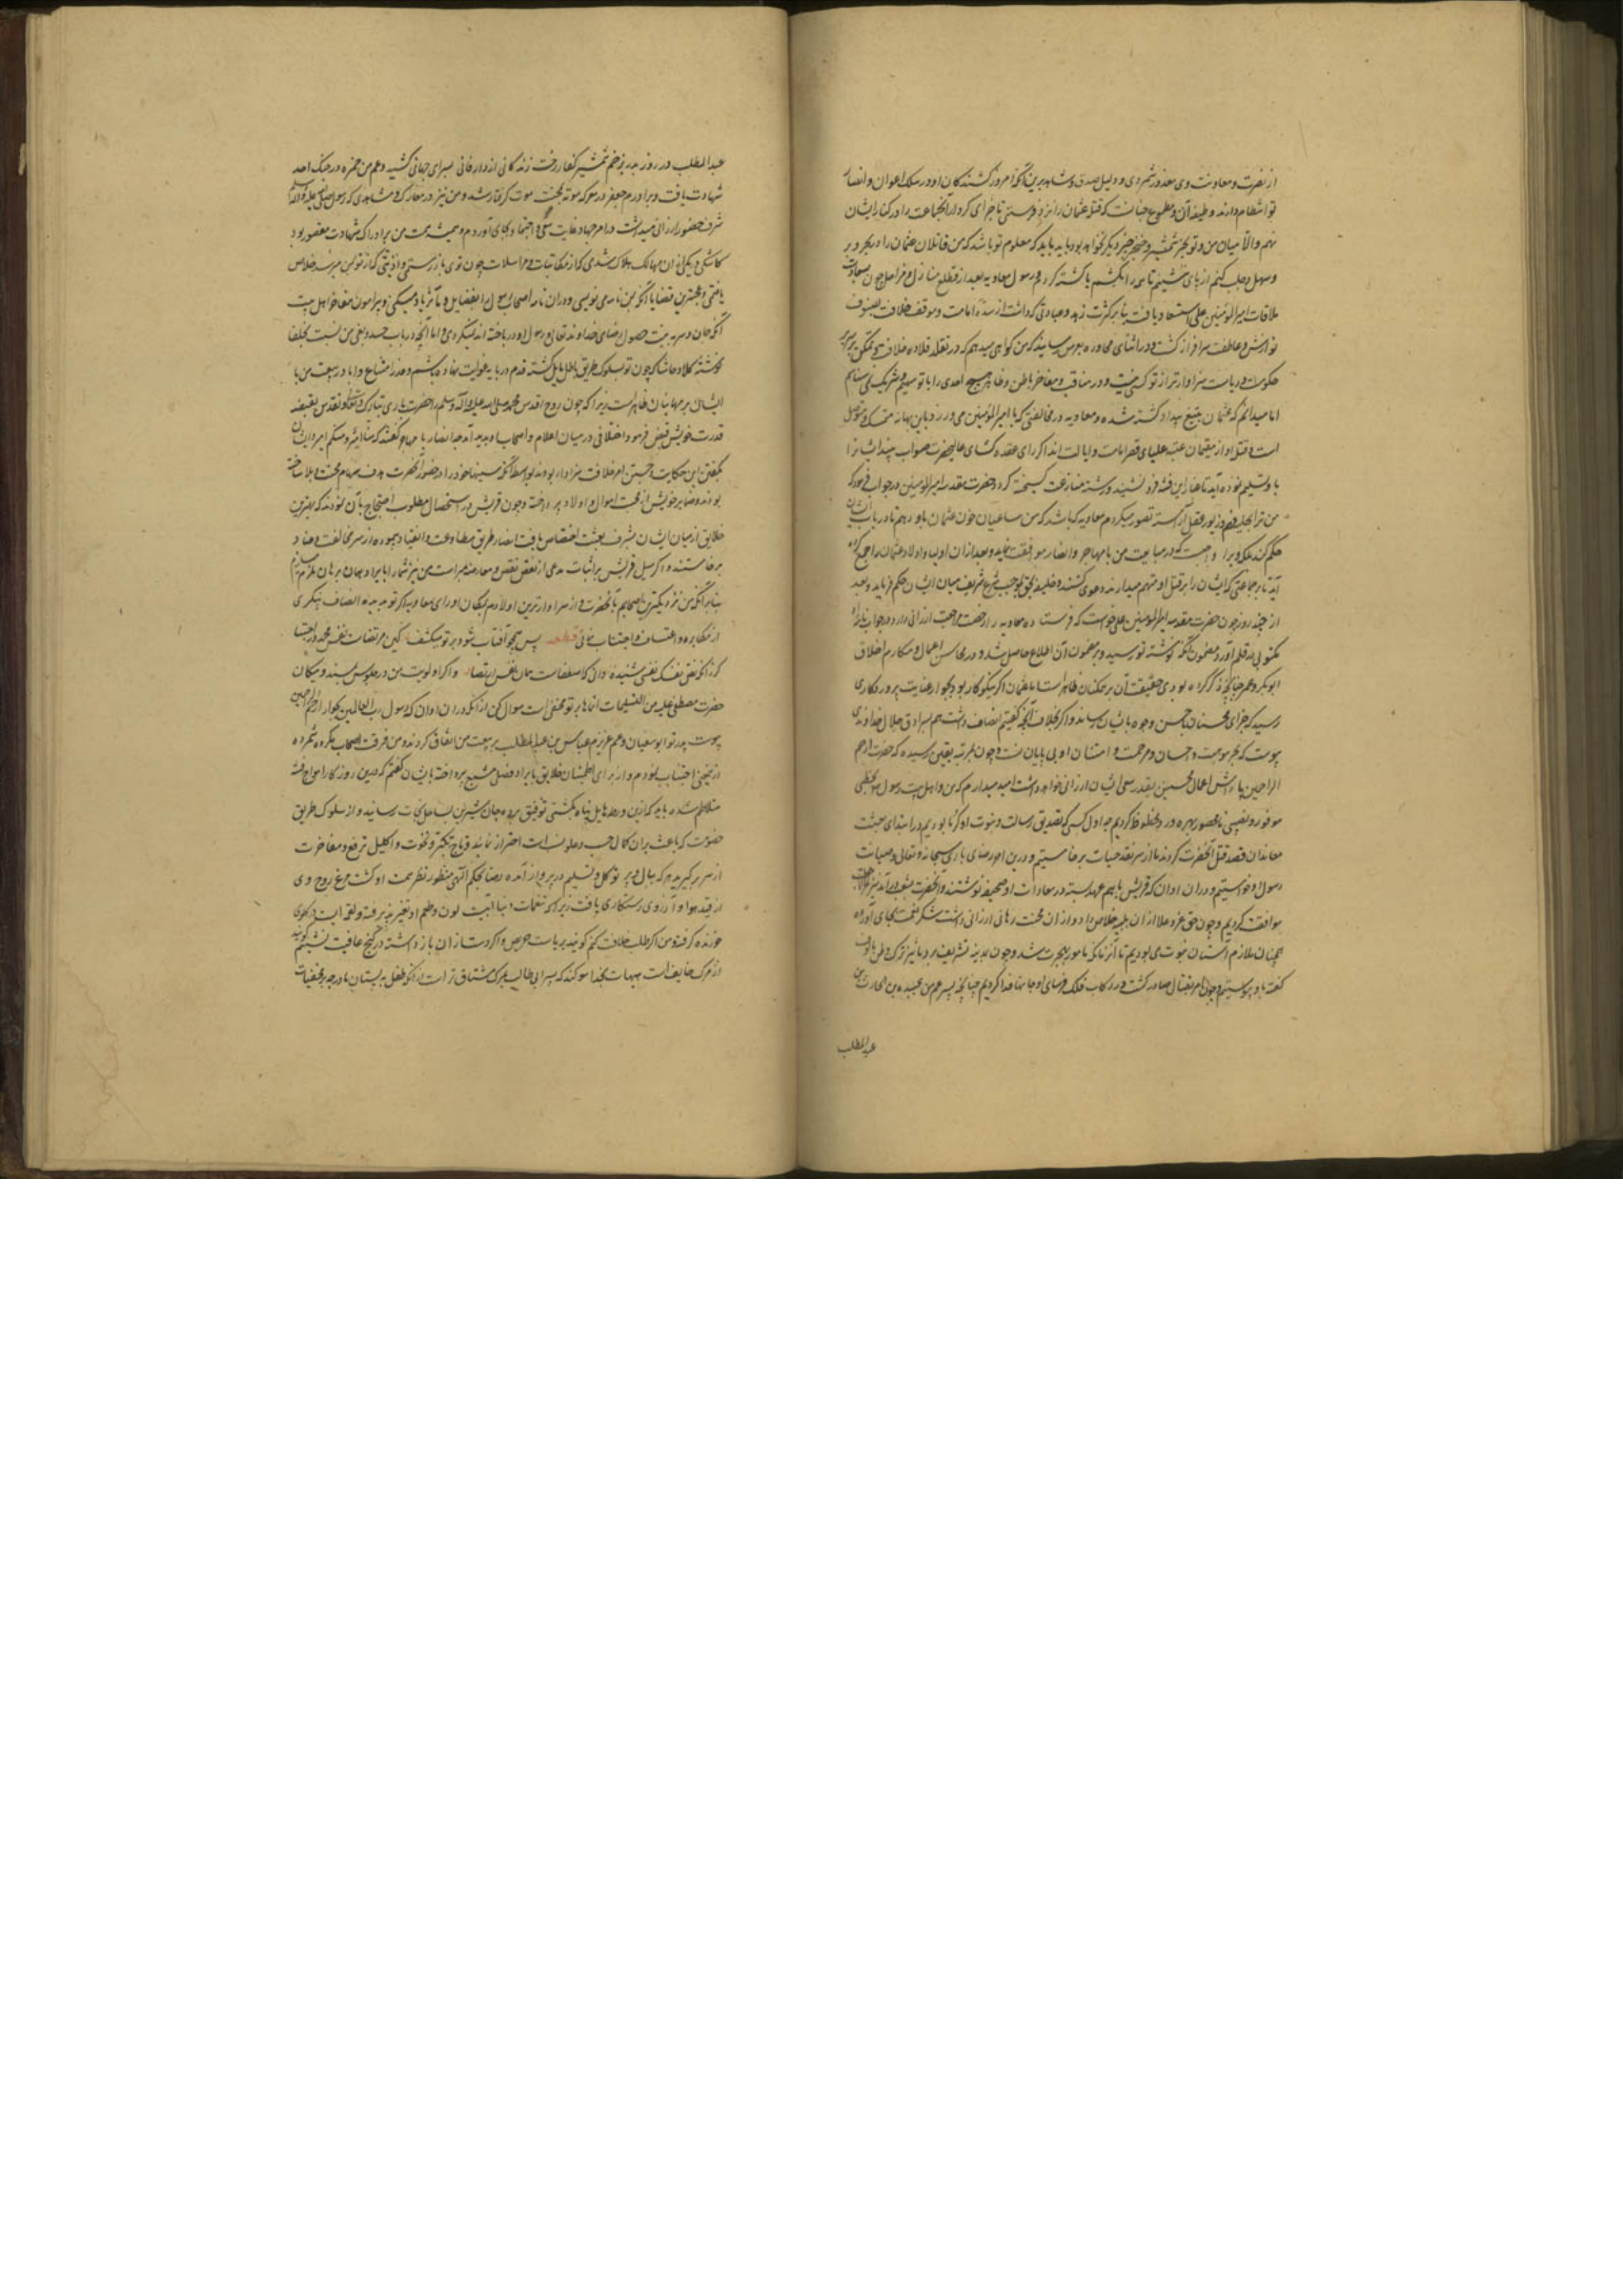 از نصرت و معاونت وی معذور شمردی و دلیل صدق و شاهد برین آنکه امروز کشندگان او در سلک اعوان و انصار
تو انتظام دارند و طیفه آن و مطموع چنانست که قتله عثمان را نزد من فرستی تا جزای کردار آنجماعت را در کنار ایشان
نهم والا میان من و تو بجز شمشیر و خنجر چیز دیگر نخواهد بود باید که معلوم تو باشد که من قاتلان عثمان را در بحر و بر
و سهل و جبل کنم از پای ننشینم تا همه را بکشم یا کشته گردم و رسول معاویه بعد از قطع منازل و مراحل چون بسعادت
ملاقات امیر المؤمنین علی استسعاد یافت بنابر کثرت زهد و عبادتی که داشت از سده امامت و موقف خلافت بصنوف
نوازش و عاطفت سرافراز گشت و در اثنای محاوره بعرض رسانید که من گواهی میدهم که در تقلد قلاده خلافت و تمکن بر سریر
حکومت و ریاست سزاوارتر از تو کسی نیست و در مناقب و مفاخر باطن و ظاهر هیچ احدی را با تو سهیم و شریک نمی شناسم
اما میدانم که عثمان بتیغ بیداد کشته شده و معاویه در مخالفتی که با امیر المؤمنین می ورزد باین بهانه متمسک و متوسل
است و قتله او از مقیمان عتبه علیای قصر امامت و ایالت اند اگر رای عقده گشای عالیحضرت صواب بیند ایشانرا
با و تسلیم نموده آید تا غبار این فتنه فرو نشیند و رشته منازعت گسیخته گردد حضرت مقدسه امیر المؤمنین در جواب فرمود که
من ترا بحلیه فهم و زیور عقل آراسته تصور میکردم معاویه کجا باشد که من ساعیان خون عثمان باو دهم تا در باب ایشان
حکم کند بلکه ویرا واجبست که در مبایعت من با مهاجر و انصار موافقت نماید و بعد از ان اولیا و اولاد عثمان را جمع کرده
آید تا بر جماعتی که ایشان را بر قتل او متهم میدارند دعوی کنند و خلیفه بحق بموجب شرع شریف میان ایشان حکم فرماید و بعد
از چند روز چون حضرت مقدسه امیر المؤمنین علی خواست که فرستاده معاویه را رخصت مراجعت ارزانی دارد در جواب نامه او
مکتوبی در قلم آورد مضمون آنکه نوشته تو رسید و بر مضمون آن اطلاع حاصل شد و در محاسن اعمال و مکارم اخلاق
ابوبکر و عمر چنانچه ذکر کرده بودی حقیقت آن بر همگنان ظاهرست اما عثمان اگر نیکوکار بود بجوار عنایت پروردگاری
رسید که جزای محسنان باحسن وجوه بایشان رساند و اگر بخلاف آنچه گفتیم اتصاف داشت هم بسرادق جلال خداوندی
پیوست که بحر موهبت و احسان و مرحمت و امتنان او بی پایانست و چون بمرتبه یقین رسیده که حضرت ارحم
الراحمین پاداش اعمال محسنین بقدر سعی ایشان ارزانی خواهد داشت امید میدارم که من و اهل بیت رسول بحظی
موفور و نصیبی نامحصور بهره ور و محظوظ گردیم چه اول کسی که تصدیق رسالت و نبوت او کرد ما بودیم در ابتدای مبعث
معاندان قصد قتل آنحضرت کردند ما از سر نقد حیات برخاستیم و درین امر رضای باری سبحانه و تعالی و صیانت
رسول او خواستیم و در ان اوان که قریش با هم عهد بسته در معادات او صحیفه نوشتند و آنحضرت بشعب درآمد نیز
موافقت کردیم و چون حق عز و علا از ان بلیه خلاص داد و از ان محنت رهائی ارزانی داشت شکر نعمت بجای آورده
همچنان ملازم آستان نبوت می بودیم تا آنزمان که مامور بهجرت شد و چون بمدینه تشریف برد ما نیز ترک وطن مالوف
گفته باو پیوستیم و چون امر بقتال صادر گشت در رکاب فلک فرسای او جانها فدا کردیم چنانچه پسر عم من عبیده بن الحارث بن
عبد المطلب
عبد المطلب در روز بدر بزخم شمشیر کفار رخت زندگانی از دار فانی بسرای جاودانی کشید و عم من حمزه در جنگ احد
شهادت یافت و برادرم جعفر در معرکه موته بچنگ موت گرفتار شد و من نیز در معارک و مشاهدی که رسول صلی الله علیه و آله
شرف حضور ارزانی میداشت در امر جهاد غایت سعی و اجتهاد بجای آوردم و همیشه همت من بر ادراک شهادت مقصور بود
کاشکی در یکی از ان مهالک هلاک شدی که از مکاتبات و مراسلات چون توی باز رستمی و اذیتی که از تو بمن میرسد خلاص
یافتمی و عجبترین قضایا آنکه بمن نامه می نویسی و در ان نامه اصحاب رسول را بفضایل و مآثر یاد میکنی و پیرامون مفاخر اهل بیت
آنکه جان و سر به نیت حصول رضای خداوند تعالی و رسول او در باخته اند نمیگردی و اما آنچه در باب حسد و بغی من نسبت بخلفا
نوشته کلا و حاشا که چون تو بسلوک طریق باطل مایل گشته قدم در بادیه غوایت نهاده باشم و عذر امتناع و ابا در بیعت من با
ایشان بر جهانیان ظاهرست زیرا که چون روح اقدس محمد صلی الله علیه و آله و سلم را حضرت باری تبارک و تعالی و تقدس بقبضه
قدرت خویش قبض فرمود اختلافی در میان اعلام و اصحاب پدید آمد انصار با مهاجر گفتند که منا امیر و منکم امیر و ایشان
بگفتن این حکایت و جستن امر خلافت سزاوار بودند بواسطه آنکه سینهاء خود را در حضور آنحضرت هدف سهام محنت و بلا ساخته
بودند و ضمایر خویش از محبت اموال و اولاد پرداخته و چون قریش در استحصال مطلوب احتجاج بآن نمودند که بهترین
خلایق از میان ایشان بشرف بعثت اختصاص یافت انصار طریق مطاوعت و انقیاد پیموده از سر مخالفت و عناد
برخاستند و اگر سبیل قریش بر اثبات مدعی از نقض و معارضه مبراست من نیز شما را بایراد همان برهان ملزم سازم
بنابر آنکه من نزدیکترین اصحابم بآنحضرت و از سزاوارترین اولادم بمکان او و رای معاویه اگر تو بدیده انصاف بنگری
از مکابره و اعتساف اجتناب نمائی قطعه پس همچو آفتاب شود بر تو منکشف کین مرتضاست نفس محمد در اجتبا
گر زانکه نص نفسک نفسی شنیده دانی که مصطفاست همان نفس مرتضا و اگر اولویت من در جلوس مسند و مکان
حضرت مصطفی علیه من التسلیمات انماها بر تو مخفی است سوال کن از آنکه در ان اوان که رسول رب العالمین بجوار ارحم الراحمین
پیوست پدر تو ابوسفیان و عم عزیزم عباس بن عبد المطلب بر بیعت من اتفاق کردند و من فرقت اصحاب مکروه شمرده
از معنی اجتناب نمودم و از برای اطمینان خلایق بایراد فصلی مشبع پرداخته بایشان گفتم که درین روزگار امواج فتنه
متلاطم شده باید که ازین ورطه هایل پناه بکشتی توفیق برده جان شیرین بساحل نجات رسانید و از سلوک طریق
خصومت که باعث بران کمال حسب و علو نسب است احتراز نمائید و تاج تکبر و نخوت و اکلیل ترفع و مفاخرت
از سر برگیرید هر که ببال و پر توکل و تسلیم در پرواز آمده رضا بحکم الهی منظور نظر همت او گشت مرغ روح وی
از قید هوا و آرزوی رستگاری یافت زیرا که نعمات دنیا آبیست لون و طعم او تغیر پذیرفته و لقمه ایست در گلوی
خورنده گرفته و من اگر طلب خلافت کنم گویند بریاست حریص و اگر دست از ان باز داشته در کنج عافیت نشینم گویند
از مرگ خایف است هیهات بخدا سوگند که پسر ابی طالب بمرگ مشتاق تر است از آنکه طفل به پستان مادر چه بر مخفیات